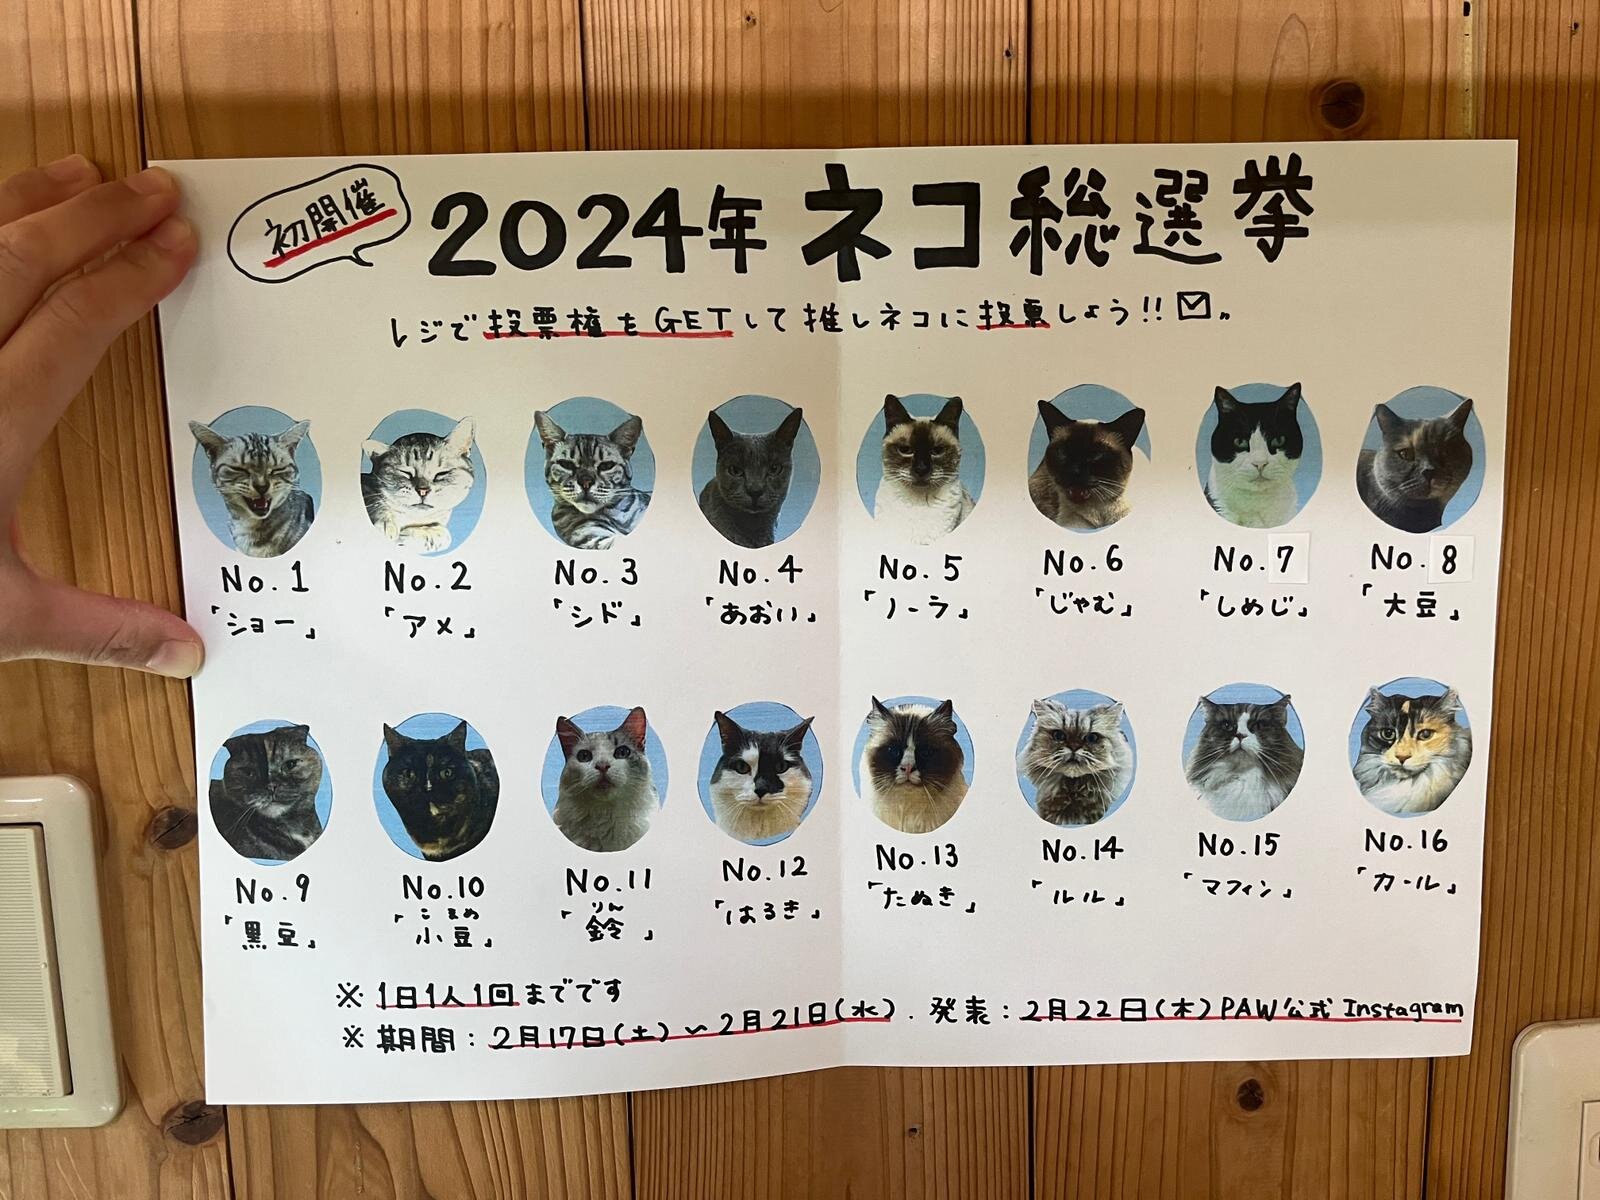 初開催
2024年 ネコ総選挙
レジで投票権をGETして推しネコに投票しよう!!
No.1 No.2 No.3 No.4 No.5 No.6 No.7 No.8
「ショー」 「アメ」 「シド」 「あおい」 「ノーラ」 「じゃむ」 「しめじ」 「大豆」
No.9 No.10 No.11 No.12 No.13 No.14 No.15 No.16
こまめ りん
「黒豆」 「小豆」 「鈴」 「はるき」 「たぬき」 「ルル」 「マフィン」 「カール」
※ 1日1人1回までです
※ 期間:2月17日(土)~2月21日(水). 発表:2月22日(木)PAW公式Instagram